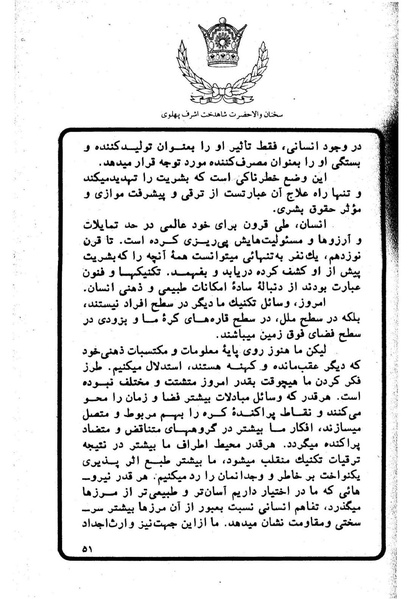 سخنان والاحضرت شاهدخت اشرف پهلوی
در وجود انسانی، فقط تأثیر او را بعنوان تولیدکننده و
بستگی او را بعنوان مصرف‌کننده مورد توجه قرار میدهد.
این وضع خطرناکی است که بشریت را تهدید میکند
و تنها راه علاج آن عبارتست از ترقی و پیشرفت موازی و
مؤثر حقوق بشری.
انسان، طی قرون برای خود عالمی در حد تمایلات
و آرزوها و مسئولیت‌هایش پی‌ریزی کرده است. تا قرن
نوزدهم، یك‌نفر به‌تنهائی میتوانست همهٔ آنچه را که بشریت
پیش از او کشف کرده دریابد و بفهمد. تکنیکها و فنون
عبارت بودند از دنبالهٔ سادهٔ امکانات طبیعی و ذهنی انسان.
امروز، وسائل تکنیك ما دیگر در سطح افراد نیستند،
بلکه در سطح ملل، در سطح قاره‌های کرهٔ ما و بزودی در
سطح فضای فوق زمین میباشند.
لیکن ما هنوز روی پایهٔ معلومات و مکتسبات ذهنی‌خود
که دیگر عقب‌مانده و کهنه هستند، استدلال میکنیم. طرز
فکر کردن ما هیچوقت بقدر امروز متشتت و مختلف نبوده
است. هرقدر که وسائل مبادلات بیشتر فضا و زمان را محو
می‌کنند و نقاط پراکندهٔ کره را بهم مربوط و متصل
میسازند، افکار ما بیشتر در گروههای متناقض و متضاد
پراکنده میگردد. هرقدر محیط اطراف ما بیشتر در نتیجه
ترقیات تکنیك منقلب میشود، ما بیشتر طبع اثر پذیری
یکنواخت بر خاطر و وجدانمان را رد میکنیم. هر قدر نیرو-
هائی که ما در اختیار داریم آسان‌تر و طبیعی‌تر از مرزها
میگذرد، تفاهم انسانی نسبت بعبور از آن مرزها بیشتر سر-
سختی و مقاومت نشان میدهد. ما از این جهت نیز وارث اجداد
۵۱